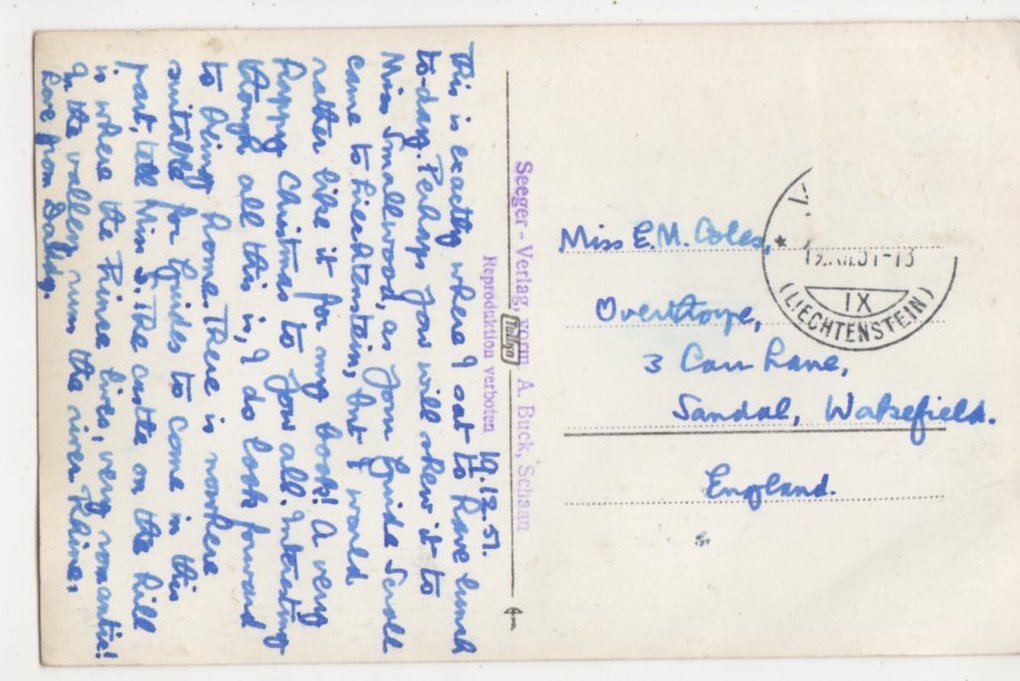 19.12.51.
This is exactly where I sat to have lunch
to-day. Perhaps you will shew it to
Miss Smallwood, as your Guide Scroll
came to Liechtenstein, but I would
rather like it for my book! A very
Happy Christmas to you all. Interesting
though all this is, I do look forward
to being home. There is nowhere
suitable for Guides to come in this
part, tell Miss S. The castle on the hill
is where the Prince lives, very romantic!
In the valley runs the river Rhine.
Love from
Seeger - Verlag, vorm. A. Buck, Schaan
Reproduktion verboten
Miss E.M. Coles,
Overthorpe,
3 Carr Lane,
Sandal, Wakefield.
England.
19.XII.51-13
IX
(LIECHTENSTEIN)